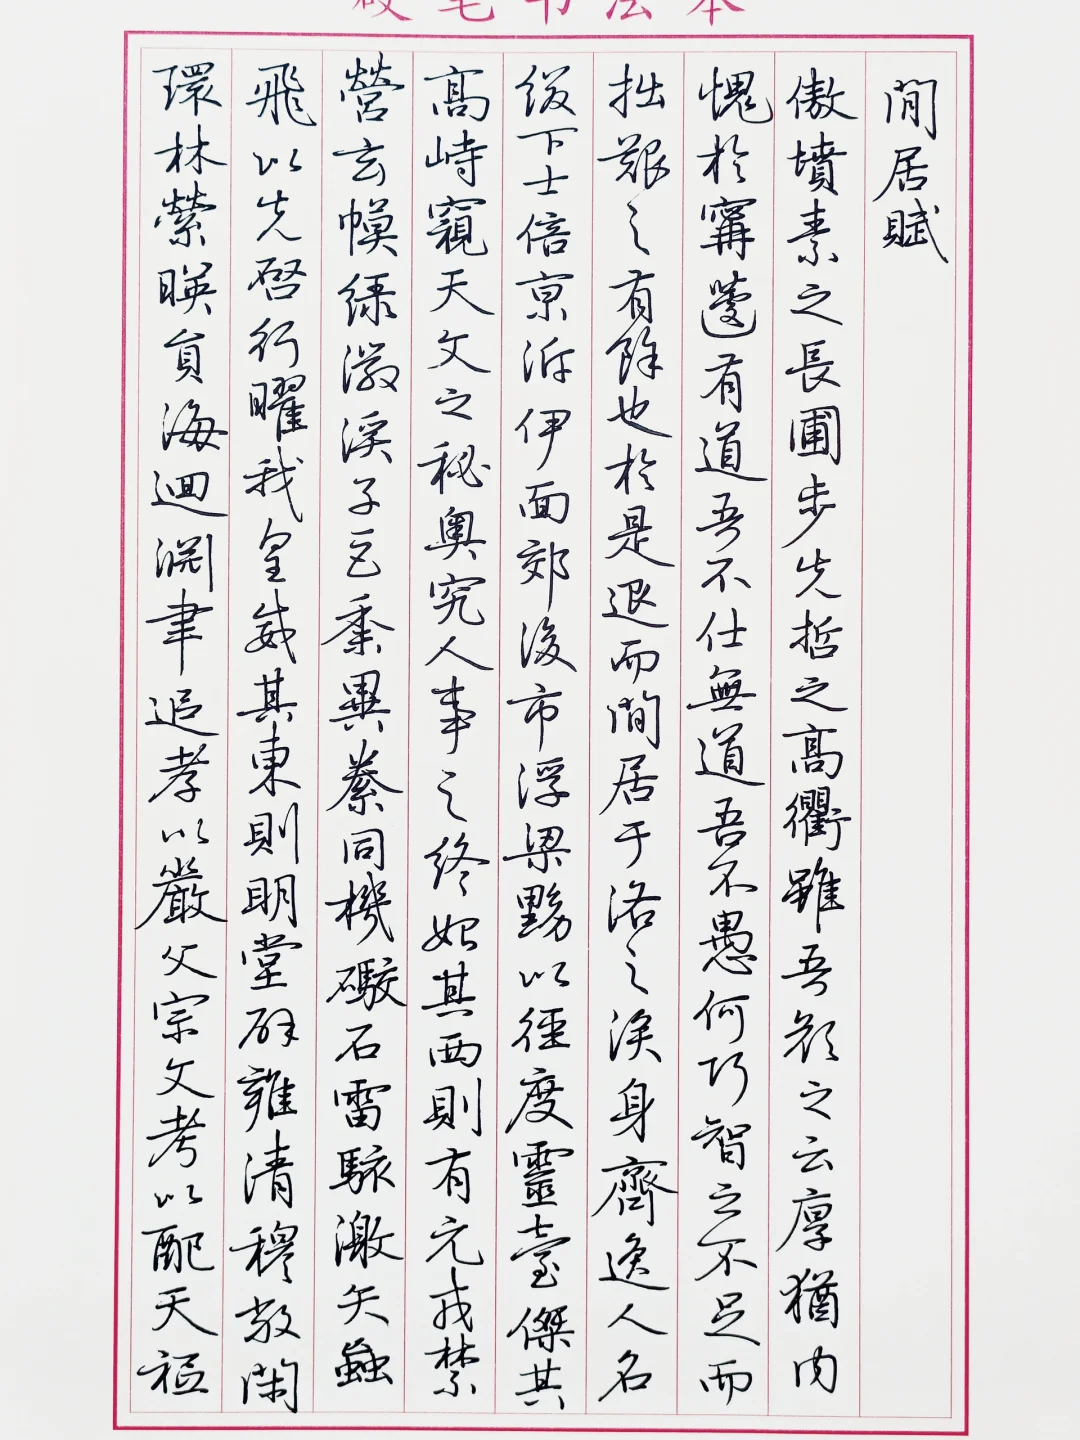 硬笔书法本
閒居賦
傲墳素之長圃步先哲之高衢雖吾顏之云厚猶内
愧於甯蘧有道吾不仕無道吾不愚何巧智之不足而
拙艱之有餘也於是退而閒居于洛之涘身齊逸人名
綴下士倍京泝伊面郊後市浮梁黝以徑度靈臺傑其
高峙窺天文之秘奧究人事之終始其西則有元戎禁
營玄幙綠徽溪子巨黍異絭同機礮石雷駭激矢蝱
飛以先啓行曜我皇威其東則明堂辟雍清穆敞閑
環林縈暎員海迴淵聿追孝以嚴父宗文考以配天祗